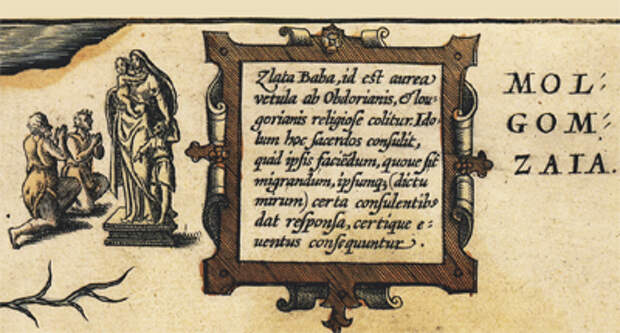 Zlata Baba, id est aurea
vetula ab Obdorianis, & Iou-
gorianis religiose colitur. Ido
lum hoc sacerdos consulit,
quid ipsis faciēdum, quove sit
migrandum, ipsumq; (dictu
mirum) certa consulentib9
dat responsa, certique e-
uentus consequuntur.
MOL-
GOM-
ZAIA.